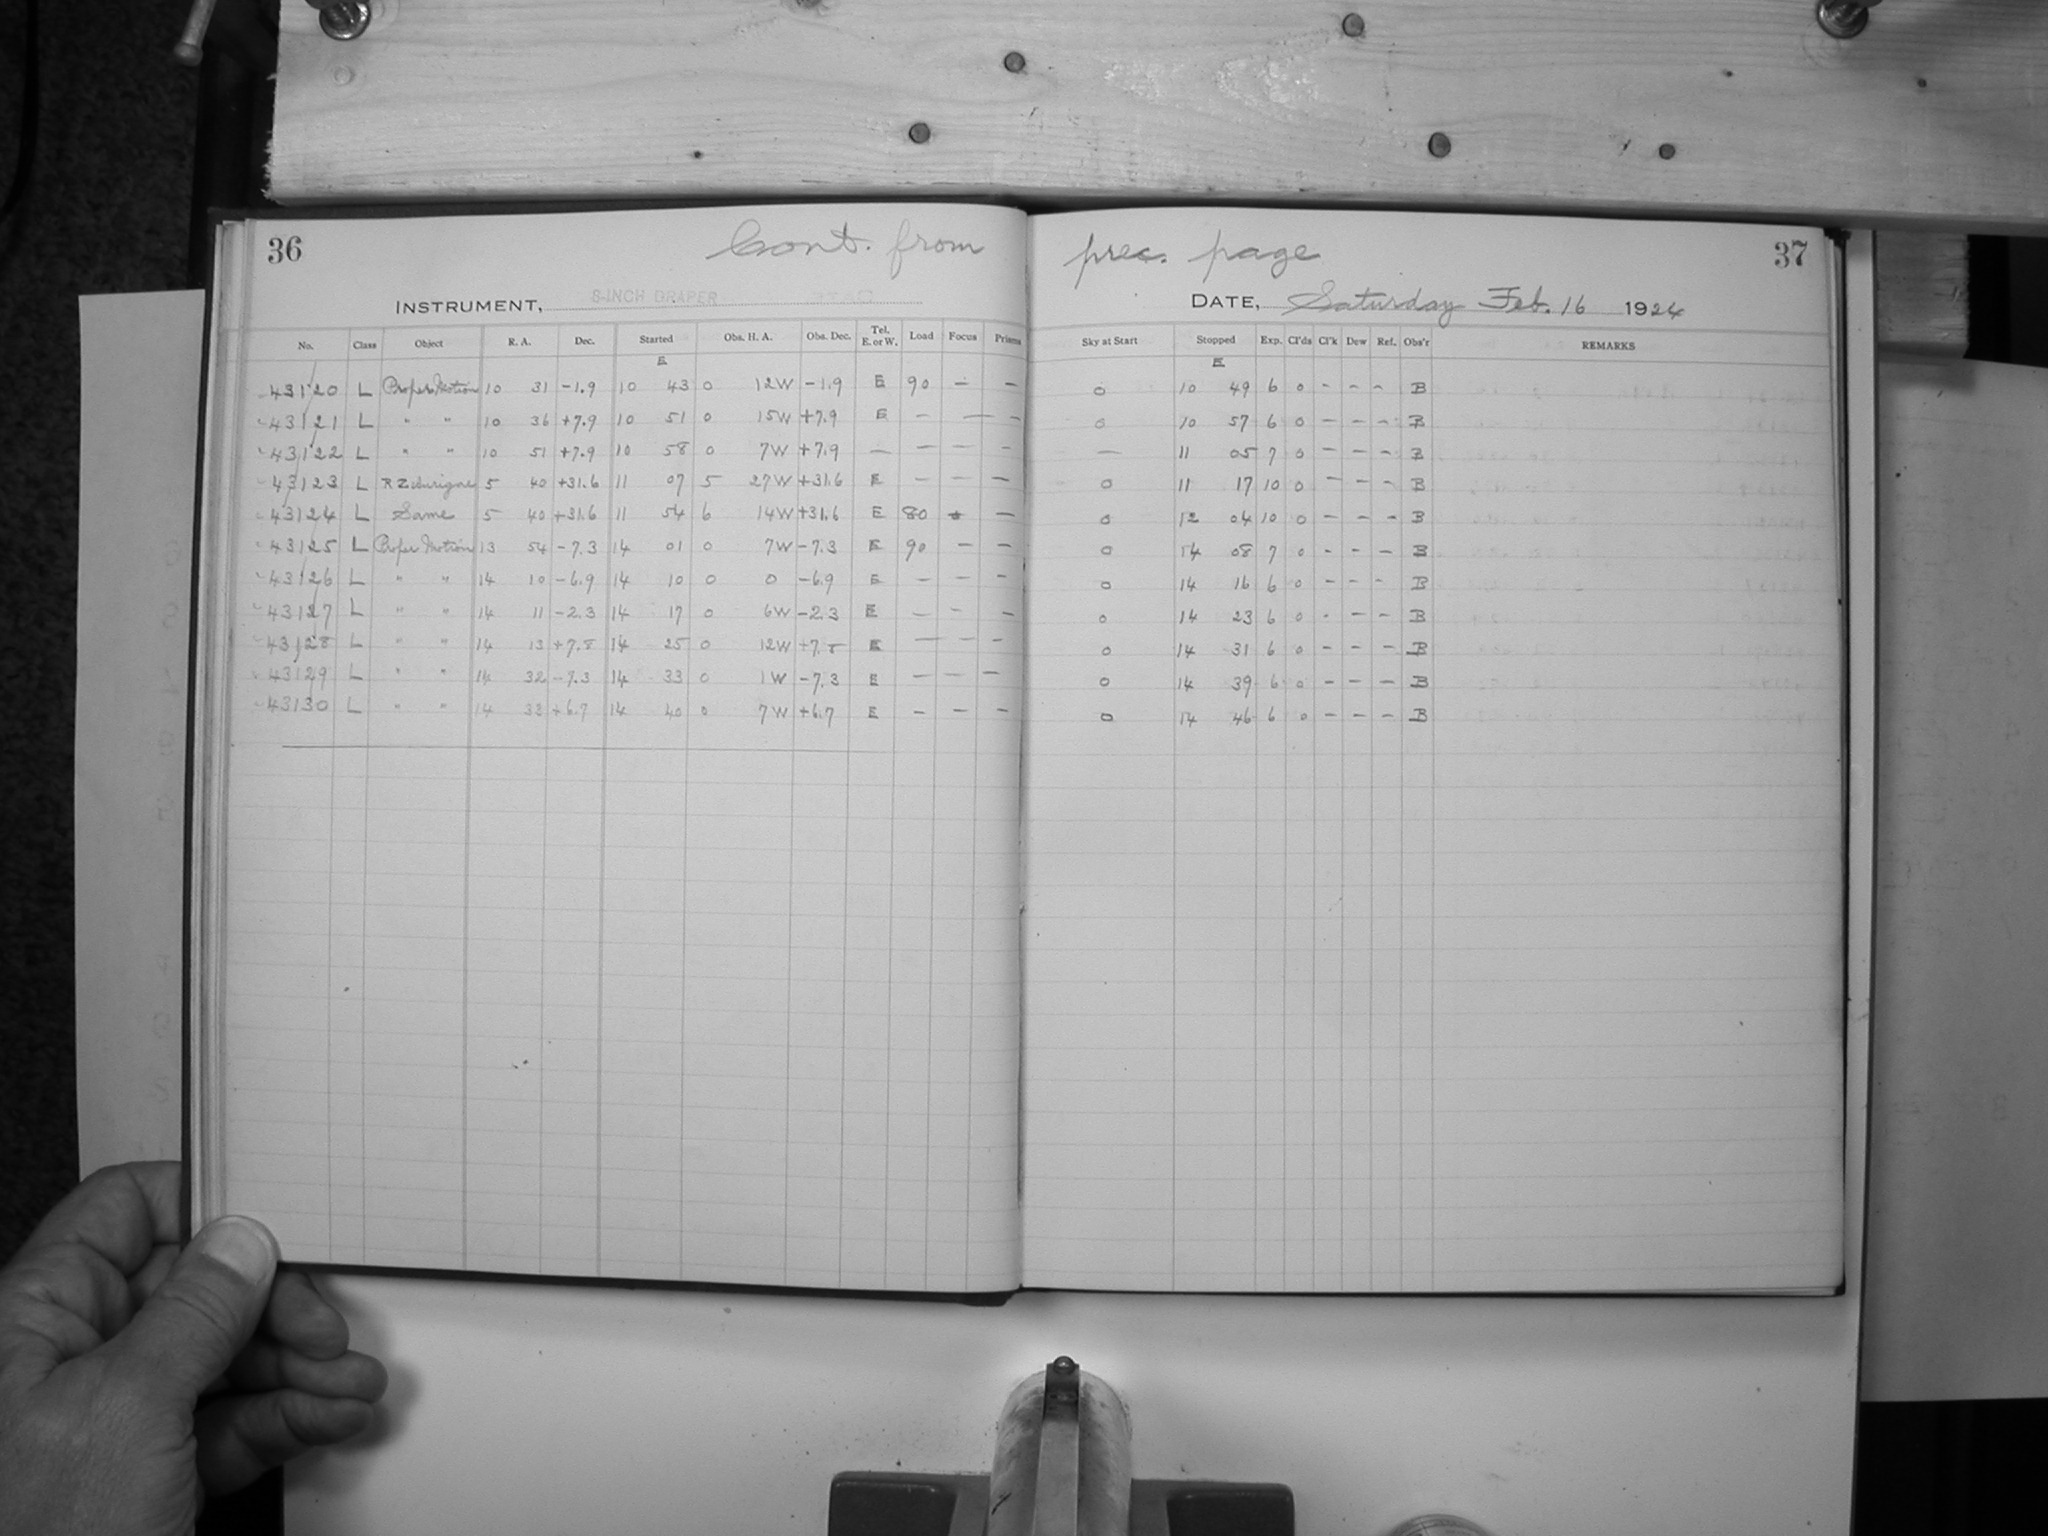 36 Cont. from prec. page 37
INSTRUMENT, 8-INCH DRAPER DATE, Saturday Feb. 16 1924
No. Class Object R. A. Dec. Started Obs. H. A. Obs. Dec. Tel. E. or W. Load Focus Prisms Sky at Start Stopped Exp. Cl'ds Cl'k Dew Ref. Obs'r REMARKS
E E
43120 L Proper Motion 10 31 -1.9 10 43 0 12W -1.9 E 90 - - 0 10 49 6 0 - - - B
43121 L " " 10 36 +7.9 10 51 0 15W +7.9 E - - - 0 10 57 6 0 - - - B
43122 L " " 10 51 +7.9 10 58 0 7W +7.9 - - - - - 11 05 7 0 - - - B
43123 L R Z Aurigae 5 40 +31.6 11 07 5 27W +31.6 E - - - 0 11 17 10 0 - - - B
43124 L Same 5 40 +31.6 11 54 6 14W +31.6 E 80 - 0 12 04 10 0 - - - B
43125 L Proper Motion 13 54 -7.3 14 01 0 7W -7.3 E 90 - - 0 14 08 7 0 - - - B
43126 L " " 14 10 -6.9 14 10 0 0 -6.9 E - - - 0 14 16 6 0 - - - B
43127 L " " 14 11 -2.3 14 17 0 6W -2.3 E - - - 0 14 23 6 0 - - - B
43128 L " " 14 13 +7.8 14 25 0 12W +7.8 E - - - 0 14 31 6 0 - - - B
43129 L " " 14 32 -7.3 14 33 0 1W -7.3 E - - - 0 14 39 6 0 - - - B
43130 L " " 14 33 +6.7 14 40 0 7W +6.7 E - - - 0 14 46 6 0 - - - B